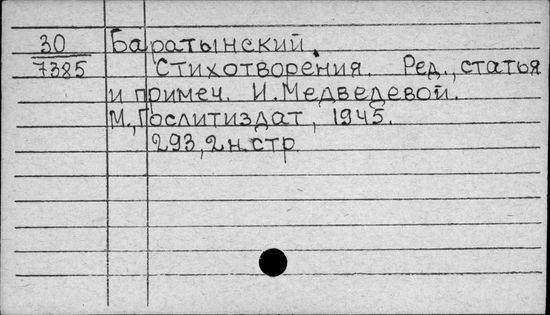 30 Баратынский.
7385 Стихотворения. Ред., статья
и примеч. И. Медведевой.
М., Гослитиздат, 1945.
293, 2 н. стр.